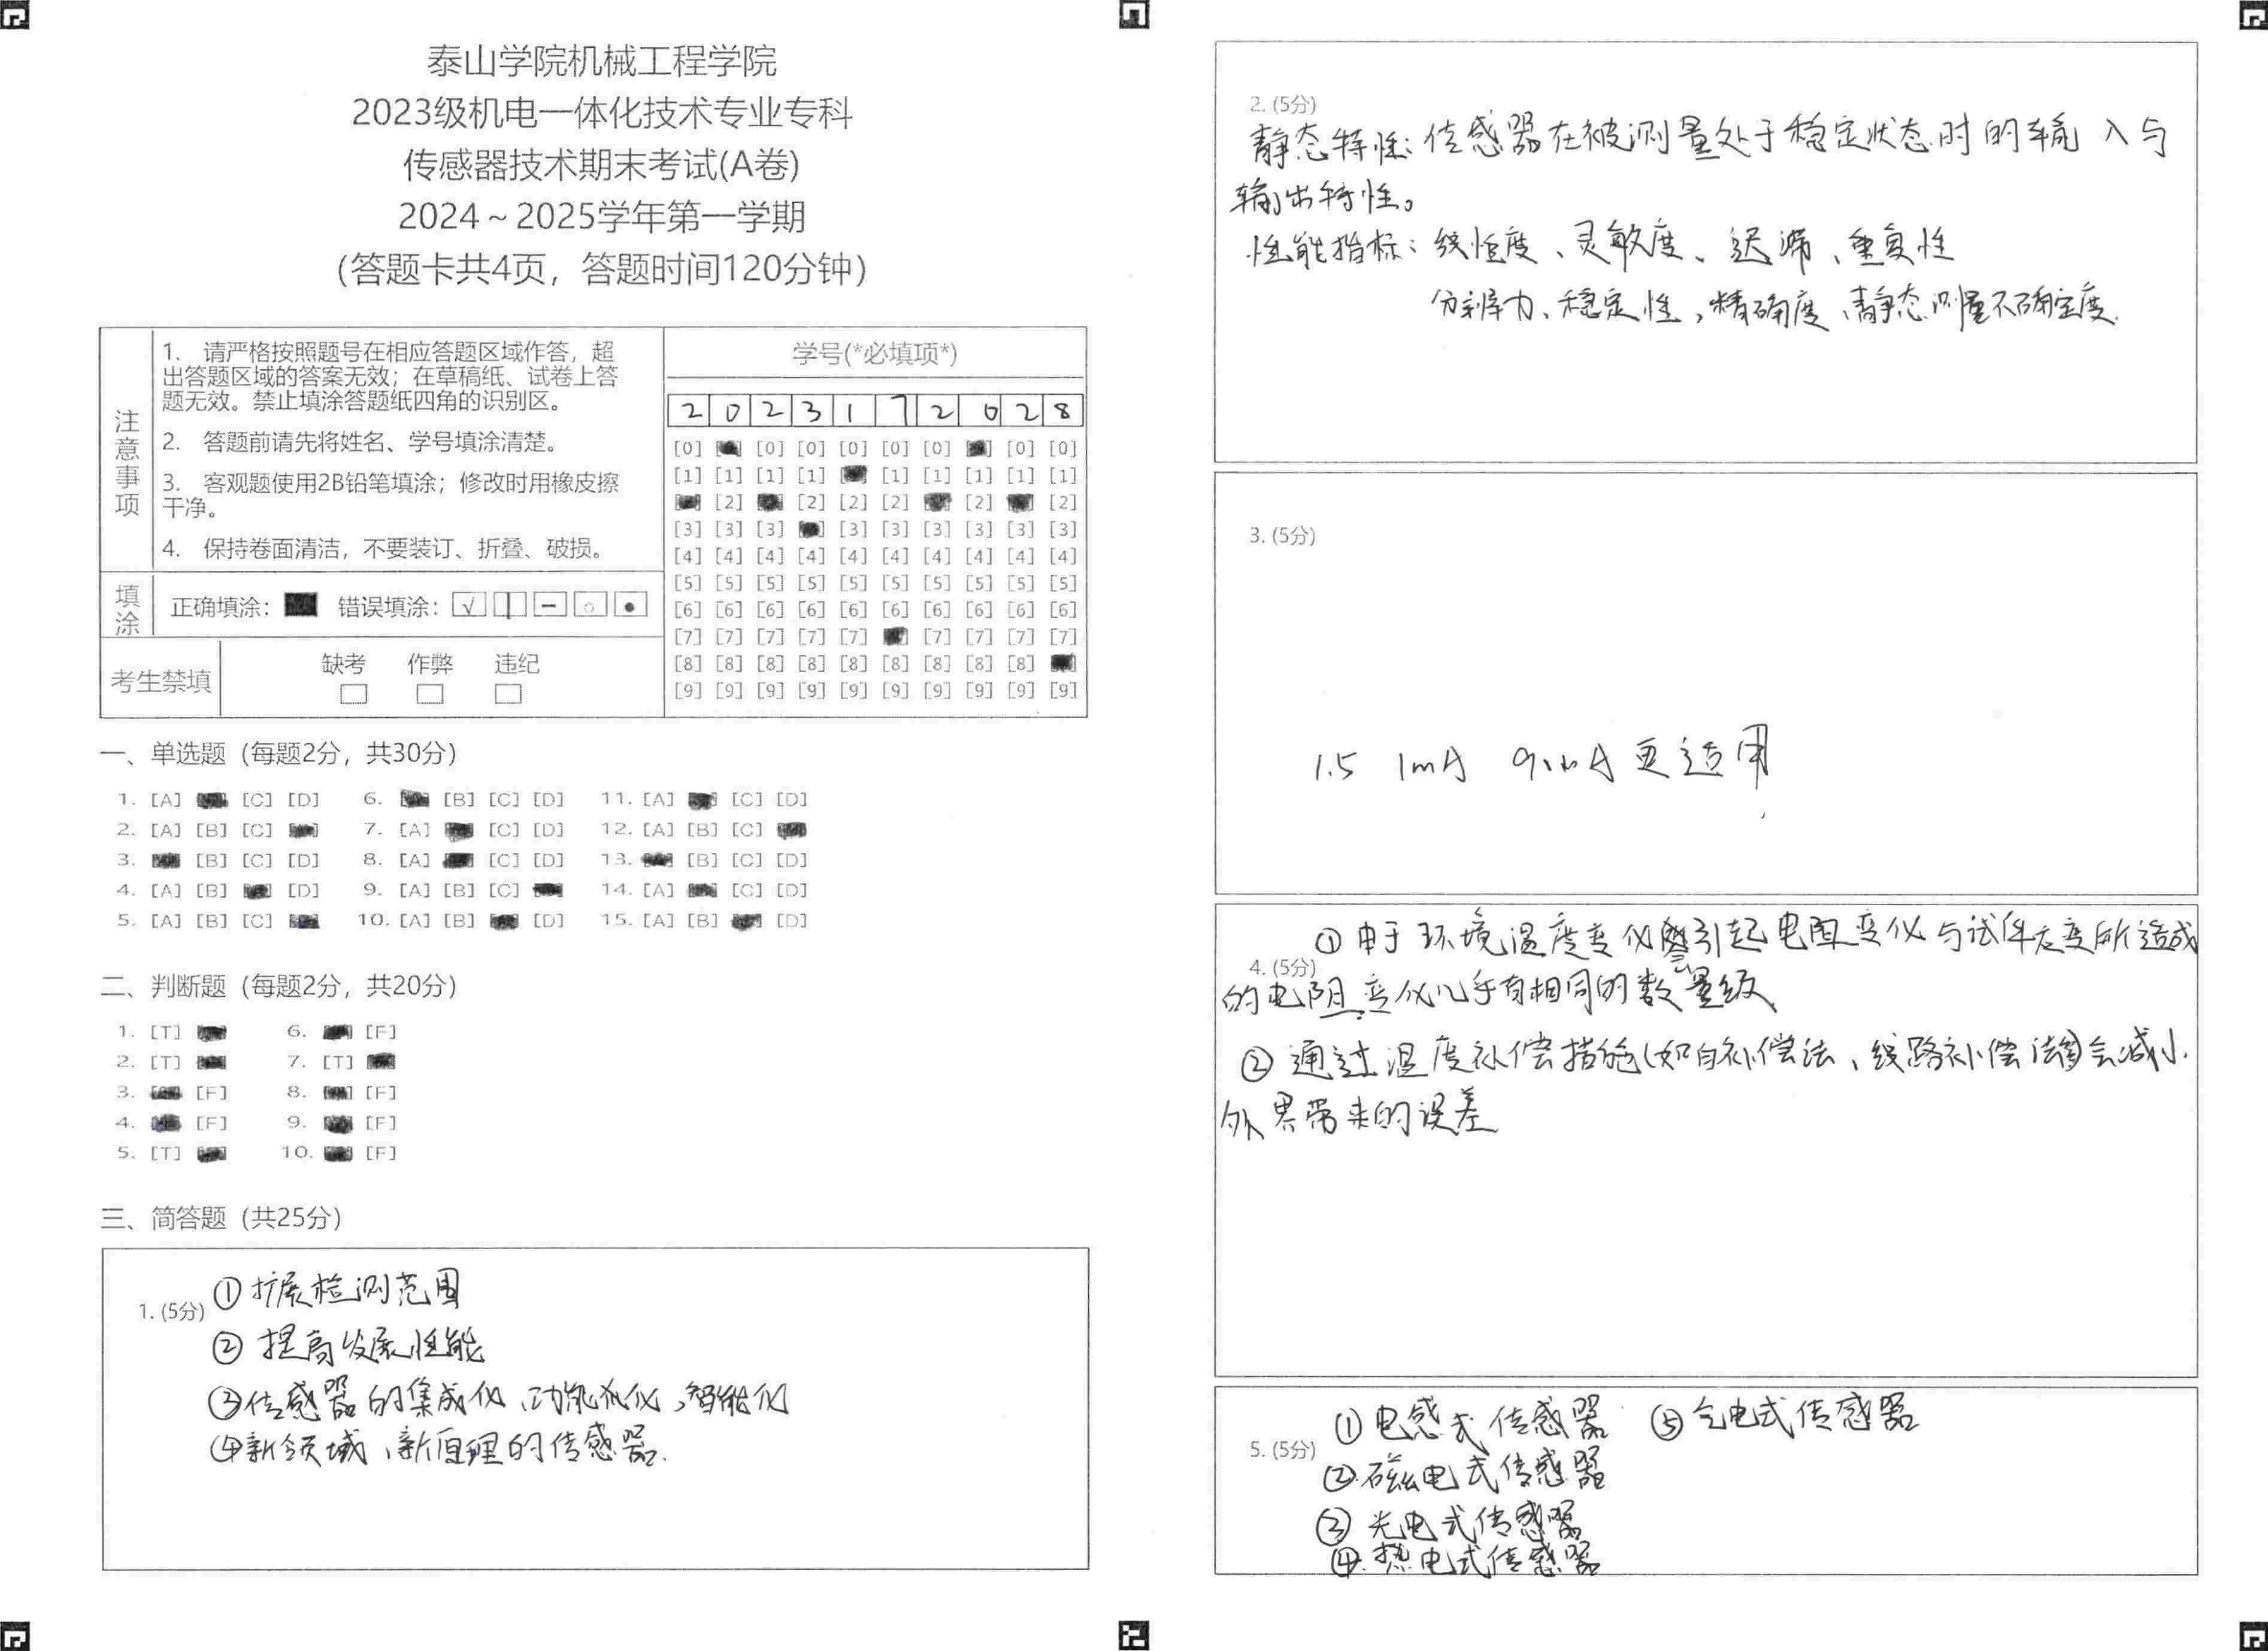 泰山学院机械工程学院
2023级机电一体化技术专业专科
传感器技术期末考试(A卷)
2024～2025学年第一学期
(答题卡共4页，答题时间120分钟)
注意事项
1. 请严格按照题号在相应答题区域作答，超
出答题区域的答案无效；在草稿纸、试卷上答
题无效。禁止填涂答题纸四角的识别区。
2. 答题前请先将姓名、学号填涂清楚。
3. 客观题使用2B铅笔填涂；修改时用橡皮擦
干净。
4. 保持卷面清洁，不要装订、折叠、破损。
填涂 正确填涂： 错误填涂：
考生禁填 缺考 作弊 违纪
学号(*必填项*)
2 0 2 3 1 7 2 0 2 8
[0] [0] [0] [0] [0] [0] [0] [0]
[1] [1] [1] [1] [1] [1] [1] [1] [1]
[2] [2] [2] [2] [2] [2]
[3] [3] [3] [3] [3] [3] [3] [3] [3]
[4] [4] [4] [4] [4] [4] [4] [4] [4] [4]
[5] [5] [5] [5] [5] [5] [5] [5] [5] [5]
[6] [6] [6] [6] [6] [6] [6] [6] [6] [6]
[7] [7] [7] [7] [7] [7] [7] [7] [7]
[8] [8] [8] [8] [8] [8] [8] [8] [8]
[9] [9] [9] [9] [9] [9] [9] [9] [9] [9]
一、单选题（每题2分，共30分）
1. [A] [C] [D] 6. [B] [C] [D] 11. [A] [C] [D]
2. [A] [B] [C] 7. [A] [C] [D] 12. [A] [B] [C]
3. [B] [C] [D] 8. [A] [C] [D] 13. [B] [C] [D]
4. [A] [B] [D] 9. [A] [B] [C] 14. [A] [C] [D]
5. [A] [B] [C] 10. [A] [B] [D] 15. [A] [B] [D]
二、判断题（每题2分，共20分）
1. [T] 6. [F]
2. [T] 7. [T]
3. [F] 8. [F]
4. [F] 9. [F]
5. [T] 10. [F]
三、简答题（共25分）
1. (5分)
①扩展检测范围
②提高发展性能
③传感器的集成化、功能化、智能化
④新领域、新原理的传感器.
2. (5分)
静态特性：传感器在被测量处于稳定状态时的输入与
输出特性。
性能指标：线性度、灵敏度、迟滞、重复性
分辨力、稳定性，精确度、静态测量不确定度.
3. (5分)
1.5 1mA 更适用
4. (5分)
①由于环境温度变化引起电阻变化与试件应变所造成
的电阻变化几乎有相同的数量级
②通过温度补偿措施(如自补偿法、线路补偿法)会减小
外界带来的误差
5. (5分)
①电感式传感器 ⑤气电式传感器
②磁电式传感器
③光电式传感器
④热电式传感器